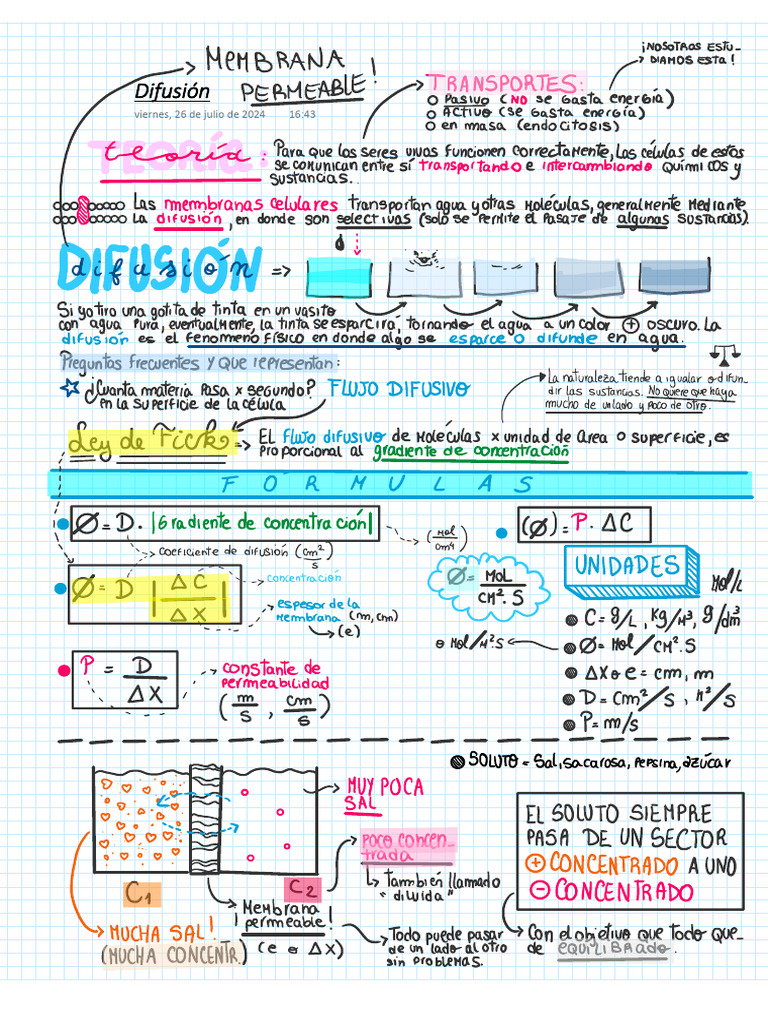 MEMBRANA
PERMEABLE!
Difusión
viernes, 26 de julio de 2024 16:43
TRANSPORTES:
o Pasivo (NO se gasta energía)
o ACTIVO (se gasta energía)
o en masa (endocitosis)
¡NOSOTROS ESTU-
DIAMOS ESTA!
TEORÍA:
teoría:
Para que los seres vivos funcionen correctamente, las células de estos
se comunican entre sí transportando e intercambiando químicos y
sustancias.
Las membranas celulares transportan agua y otras moléculas, generalmente mediante
la difusión, en donde son selectivas (solo se permite el pasaje de algunas sustancias).
DIFUSIÓN
difusión =>
Si yo tiro una gotita de tinta en un vasito
con agua pura, eventualmente, la tinta se esparcirá, tornando el agua a un color ⊕ oscuro. La
difusión es el fenómeno físico en donde algo se esparce o difunde en agua.
Preguntas frecuentes y que representan:
☆ ¿Cuanta materia pasa x segundo?
en la superficie de la célula
FLUJO DIFUSIVO
La naturaleza tiende a igualar o difun-
dir las sustancias. No quiere que haya
mucho de un lado y poco de otro.
Ley de Fick => EL flujo difusivo de moléculas x unidad de area o superficie, es
proporcional al gradiente de concentración
FÓRMULAS
Ø = D · |Gradiente de concentración|
(mol/cm4)
coeficiente de difusión (cm²/s)
(Ø) = P · ΔC
Ø = D |ΔC/ΔX|
concentración
espesor de la
membrana (m, cm)
(e)
Ø = MOL/CM².S
UNIDADES
Mol/L
C = g/L, Kg/M³, g/dm³
Ø = Mol/CM².S
o Mol/M².S
ΔX o e = cm, m
D = Cm²/S, M²/S
P = m/s
P = D/ΔX
constante de
permeabilidad
(m/s, cm/s)
SOLUTO = Sal, sacarosa, pepsina, azúcar
MUY POCA
SAL
poco concen-
trada
También llamado
"diluida"
C1
C2
MUCHA SAL!
(MUCHA CONCENTR.)
Membrana
permeable!
(e o ΔX)
Todo puede pasar
de un lado al otro
sin problemas.
EL SOLUTO SIEMPRE
PASA DE UN SECTOR
⊕ CONCENTRADO A UNO
⊖ CONCENTRADO
Con el objetivo que todo que-
de EQUILIBRADO.